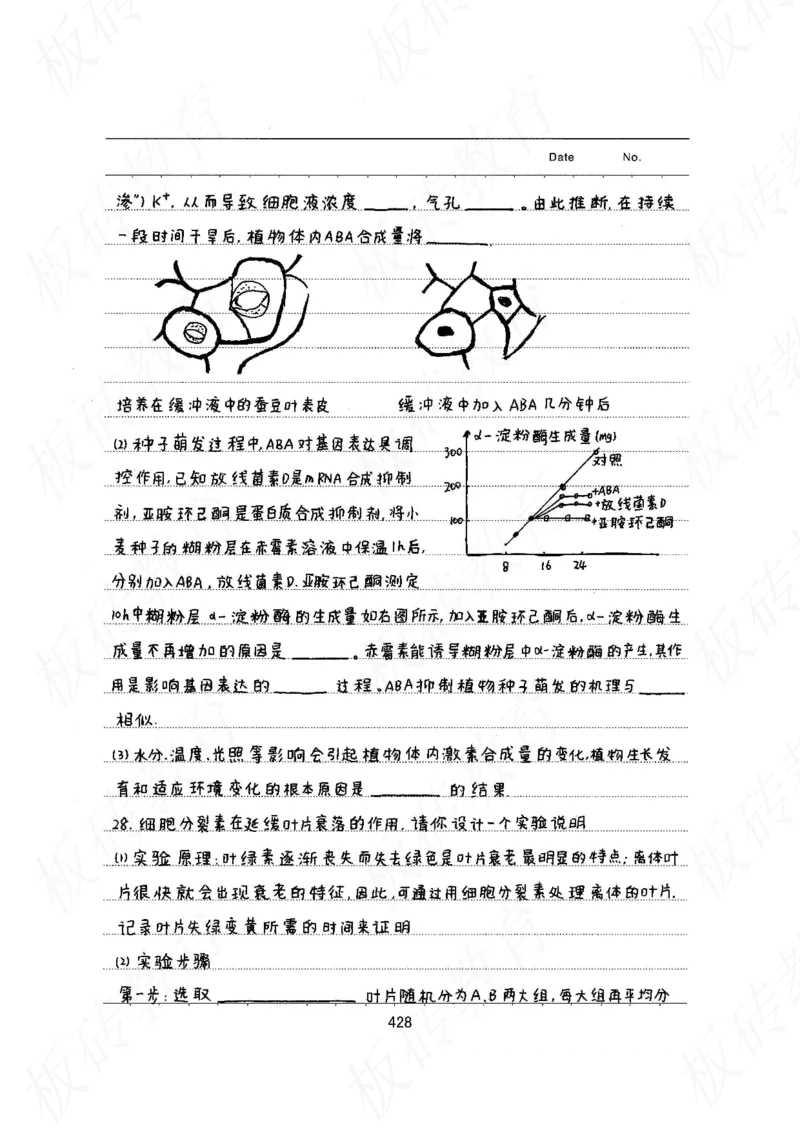 Date No.
渗") K⁺, 从而导致细胞液浓度____, 气孔____。由此推断,在持续
一段时间干旱后,植物体内ABA合成量将____.
培养在缓冲液中的蚕豆叶表皮 缓冲液中加入ABA几分钟后
(2)种子萌发过程中,ABA对基因表达具调
控作用,已知放线菌素D是mRNA合成抑制
剂,亚胺环己酮是蛋白质合成抑制剂,将小
麦种子的糊粉层在赤霉素溶液中保温1h后,
分别加入ABA,放线菌素D.亚胺环己酮测定
α-淀粉酶生成量(mg)
300
200
100
8 16 24
对照
+ABA
+放线菌素D
+亚胺环己酮
10h中糊粉层α-淀粉酶的生成量如右图所示,加入亚胺环己酮后,α-淀粉酶生
成量不再增加的原因是____。赤霉素能诱导糊粉层中α-淀粉酶的产生,其作
用是影响基因表达的____过程。ABA抑制植物种子萌发的机理与____
相似.
(3)水分.温度.光照等影响会引起植物体内激素合成量的变化,植物生长发
育和适应环境变化的根本原因是____的结果.
28.细胞分裂素在延缓叶片衰落的作用,请你设计一个实验说明
(1)实验原理:叶绿素逐渐丧失而失去绿色是叶片衰老最明显的特点;离体叶
片很快就会出现衰老的特征,因此,可通过用细胞分裂素处理离体的叶片,
记录叶片失绿变黄所需的时间来证明
(2)实验步骤
第一步:选取____叶片随机分为A、B两大组,每大组再平均分
428
板砖教育